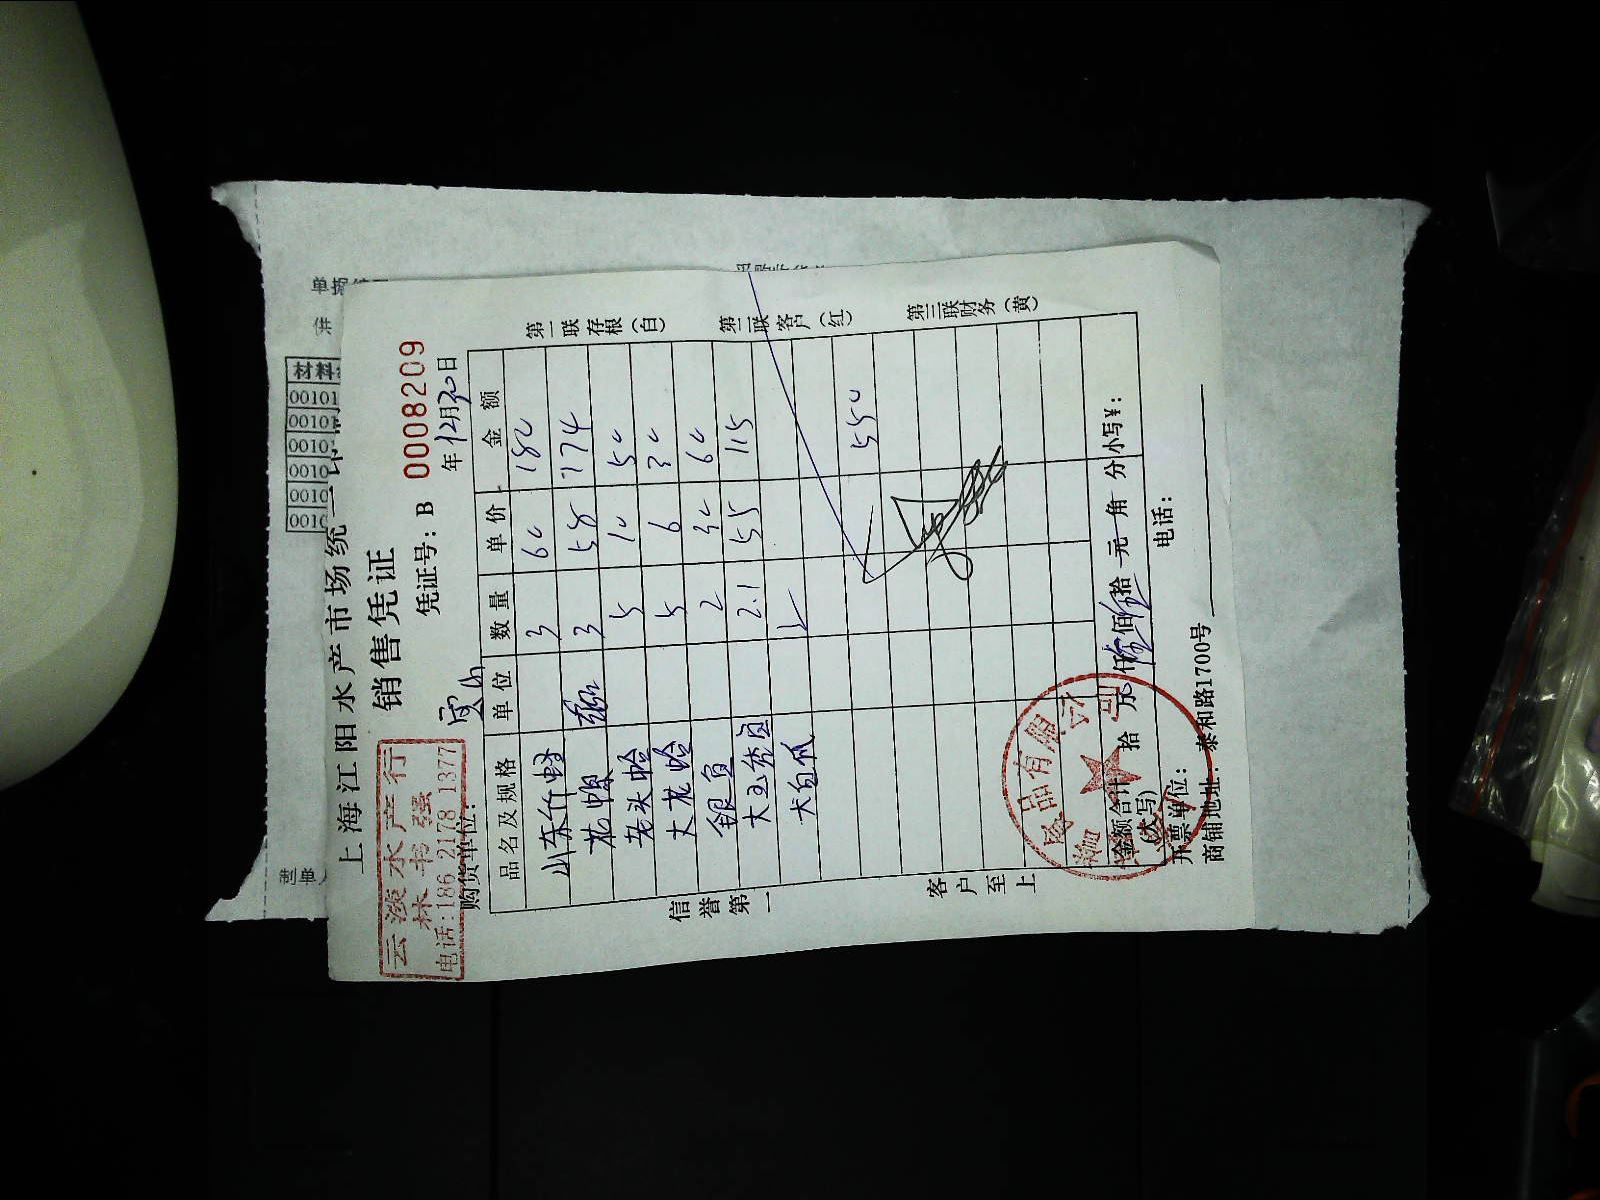 单据
供
材料
00101
0010
0010
0010
0010
0010
上海江阳水产市场统一
销售凭证
云 淡 水 产 行
林 书 强
电话:186 2178 1377
凭证号: B 0008209
购货单位:
年 12月30日
品名及规格 单位 数量 单价 金额
山东 3 60 180
花 3 58 174
老头蛤 5 10 50
大花蛤 5 6 30
银鱼 2 30 60
大 2.1 55 115
550
第一联存根(白)
第二联客户(红)
第三联财务(黄)
信誉第一
客户至上
品有限公司
金额合计(大写) 拾 万 仟 佰 拾 元 角 分 小写¥:
开票单位: 电话:
商铺地址: 泰和路1700号